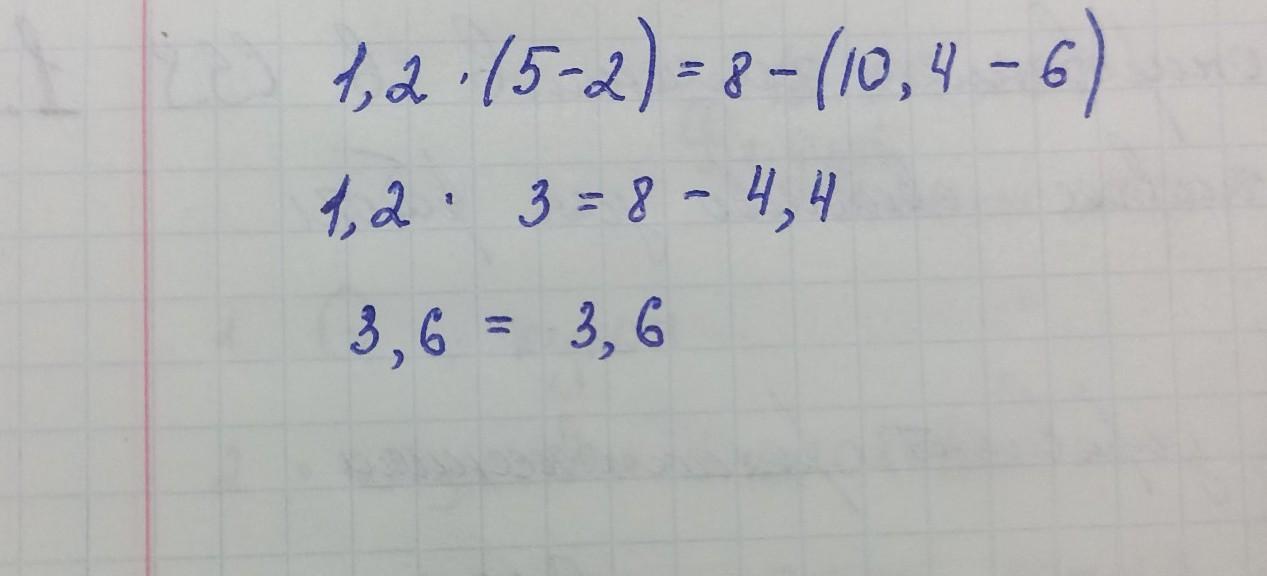 1,2 · (5-2) = 8 - (10,4 - 6)
1,2 · 3 = 8 - 4,4
3,6 = 3,6